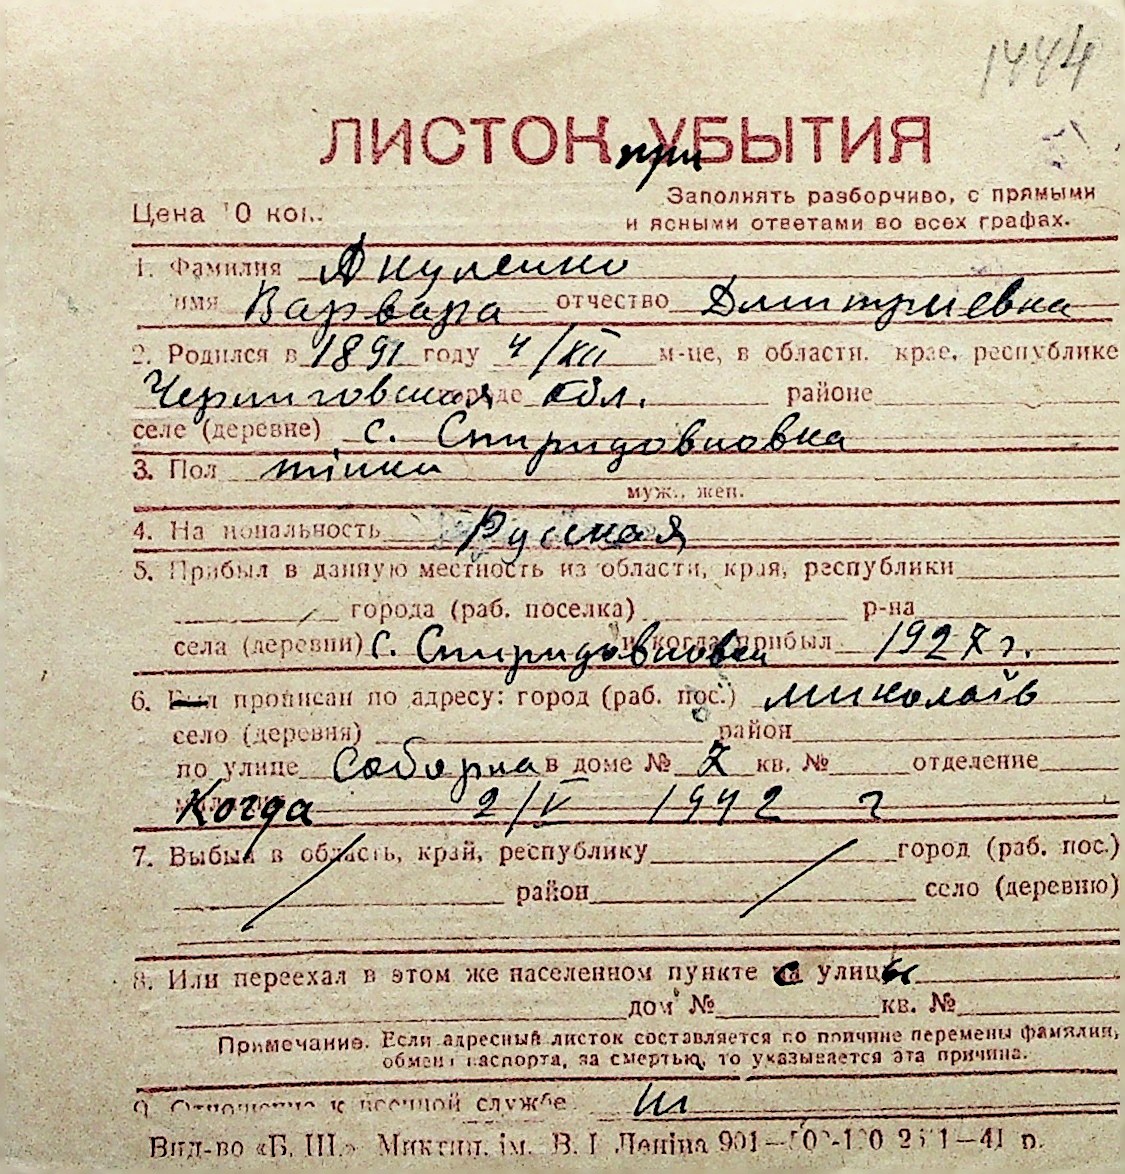 1444
ЛИСТОК при УБЫТИЯ
Цена 10 коп.
Заполнять разборчиво, с прямыми
и ясными ответами во всех графах.
1. Фамилия Акуленко
имя Варвара отчество Дмитриевна
2. Родился в 1891 году 4/XII м-це, в области, крае, республике
Черниговская городе обл. районе
селе (деревне) с. Спиридовновка
3. Пол жінка
муж., жен.
4. Национальность Русская
5. Прибыл в данную местность из области, края, республики
города (раб. поселка) р-на
села (деревни) с. Спиридовновки и когда прибыл 1927 г.
6. Был прописан по адресу: город (раб. пос.) Миколаїв
село (деревня) район
по улице Соборна в доме № 7 кв. № отделение
милиции Когда 2/V 1942 г
7. Выбыл в область, край, республику город (раб. пос.)
район село (деревню)
8. Или переехал в этом же населенном пункте с улицы
дом № кв. №
Примечание. Если адресный листок составляется по причине перемены фамилии,
обмен паспорта, за смертью, то указывается эта причина.
9. Отношение к военной службе
Вид-во «Б. Ш.» Миктип. ім. В. І Леніна 901—